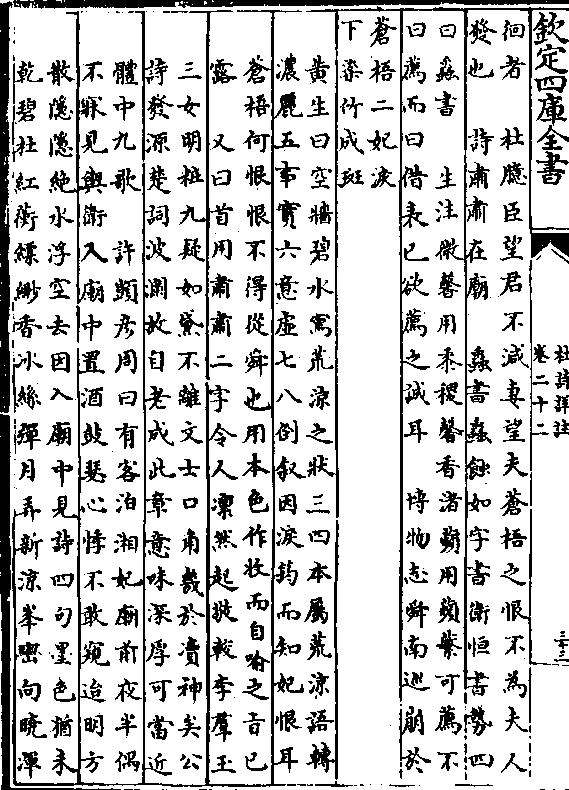 欽定四庫全書
杜詩詳注
卷二十二
徊者　杜臆臣望君不減妻望夫蒼梧之恨不為夫人
發也　詩肅肅在廟　蟲書蟲蝕如字書衛恒書勢四
曰蟲書　生注微馨用黍稷馨香渚蘋用蘋蘩可薦不
曰薦而曰借表已欲薦之誠耳　博物志舜南巡崩於
蒼梧二妃淚
下染竹成斑
黄生曰空牆碧水寫荒涼之狀三四本屬荒涼語轉
濃麗五事實六意虛七八倒叙因淚筠而知妃恨耳
蒼梧何恨恨不得從舜也用本色作收而自喻之旨已
露　又曰首用肅肅二字令人凜然起敬較李羣玉
三女明粧九疑如黛不離文士口角幾於瀆神矣公
詩發源楚詞波瀾故自老成此章意味深厚可當近
體中九歌　許顗彦周曰有客泊湘妃廟前夜半偶
不寐見輿衛入廟中置酒鼓瑟心悸不敢窺迨明方
散隱隱絶水浮空去因入廟中見詩四句墨色猶未
乾碧杜紅蘅縹緲香冰絲彈月弄新涼峯巒向曉渾